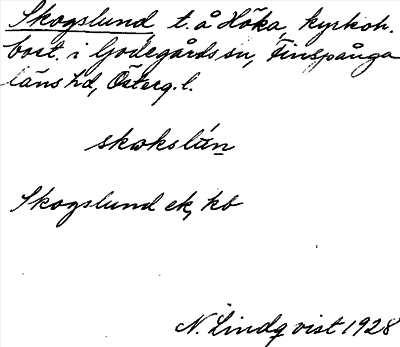 Skogslund t. å Höka, kyrkoh.
bost. i Godegårds sn, Finspånga
läns hd, Österg. l.
skωkslún
Skogslund ek, kb
N. Lindqvist 1928